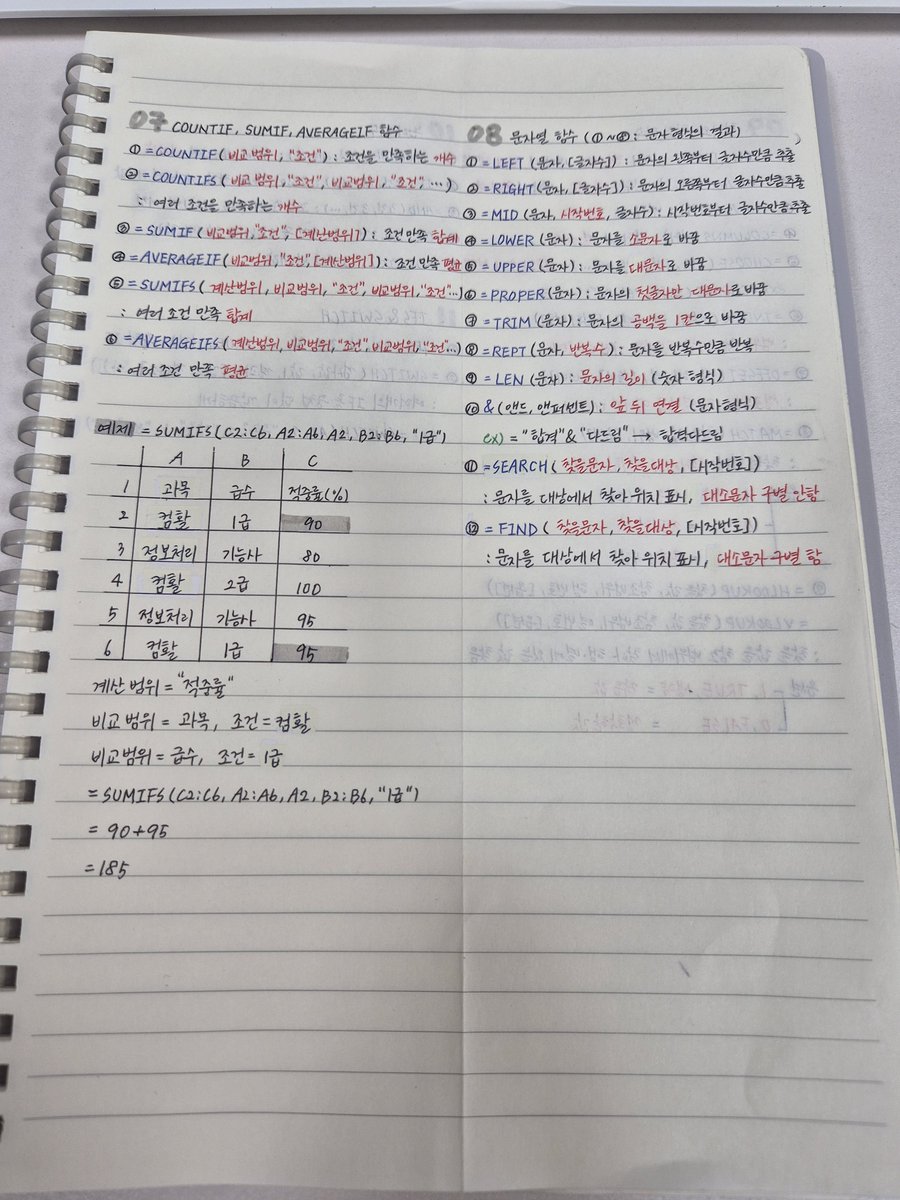 07 COUNTIF, SUMIF, AVERAGEIF 함수
① =COUNTIF(비교범위, "조건") : 조건을 만족하는 개수
② =COUNTIFS(비교범위, "조건", 비교범위, "조건", …)
: 여러 조건을 만족하는 개수
③ =SUMIF(비교범위, "조건", [계산범위]) : 조건 만족 합계
④ =AVERAGEIF(비교범위, "조건", [계산범위]) : 조건 만족 평균
⑤ =SUMIFS(계산범위, 비교범위, "조건", 비교범위, "조건"…)
: 여러 조건 만족 합계
⑥ =AVERAGEIFS(계산범위, 비교범위, "조건", 비교범위, "조건"…)
: 여러 조건 만족 평균
예제 = SUMIFS(C2:C6, A2:A6, A2, B2:B6, "1급")
A B C
1 과목 급수 적중률(%)
2 컴활 1급 90
3 정보처리 기능사 80
4 컴활 2급 100
5 정보처리 기능사 95
6 컴활 1급 95
계산 범위 = "적중률"
비교 범위 = 과목, 조건 = 컴활
비교범위 = 급수, 조건 = 1급
= SUMIFS(C2:C6, A2:A6, A2, B2:B6, "1급")
= 90+95
= 185
08 문자열 함수 (①~⑧ : 문자 형식의 결과)
① =LEFT (문자, [글자수]) : 문자의 왼쪽부터 글자수만큼 추출
② =RIGHT (문자, [글자수]) : 문자의 오른쪽부터 글자수만큼 추출
③ =MID (문자, 시작번호, 글자수) : 시작번호부터 글자수만큼 추출
④ =LOWER (문자) : 문자를 소문자로 바꿈
⑤ =UPPER (문자) : 문자를 대문자로 바꿈
⑥ =PROPER (문자) : 문자의 첫글자만 대문자로 바꿈
⑦ =TRIM (문자) : 문자의 공백을 1칸으로 바꿈
⑧ =REPT (문자, 반복수) : 문자를 반복수만큼 반복
⑨ =LEN (문자) : 문자의 길이 (숫자 형식)
⑩ & (앤드, 앰퍼센트) : 앞 뒤 연결 (문자 형식)
ex) = "합격"&"다드림" → 합격다드림
⑪ =SEARCH (찾을문자, 찾을대상, [시작번호])
: 문자를 대상에서 찾아 위치 표시, 대소문자 구별 안함
⑫ =FIND (찾을문자, 찾을대상, [시작번호])
: 문자를 대상에서 찾아 위치 표시, 대소문자 구별 함